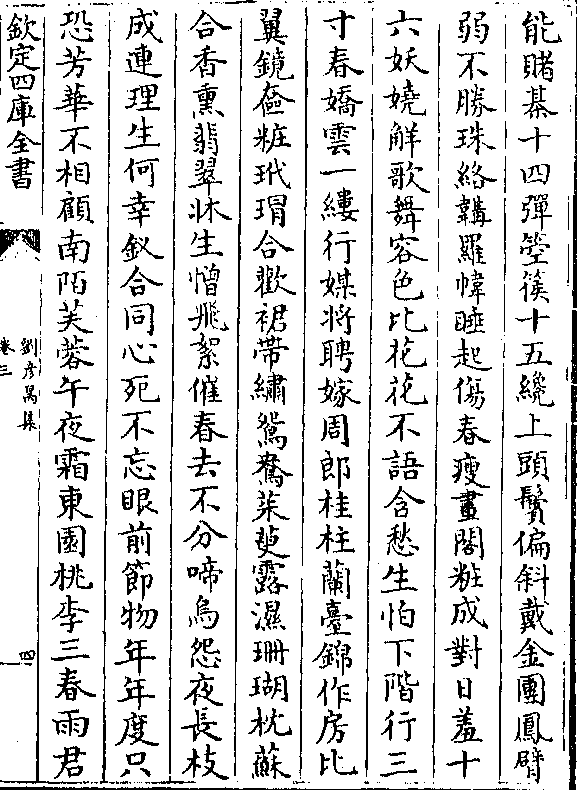 能賭棊十四彈箜篌十五纔上頭鬢偏斜戴金團鳳臂
弱不勝珠絡韝羅幃睡起傷春瘦畫閣粧成對日羞十
六妖嬈解歌舞容色比花花不語含愁生怕下階行三
寸春嬌雲一縷行媒將聘嫁周郎桂柱蘭臺錦作房比
翼鏡奩粧玳瑁合歡裙帶繡鴛鴦茱萸露濕珊瑚枕蘇
合香熏翡翠牀生憎飛絮催春去不分啼烏怨夜長枝
成連理生何幸釵合同心死不忘眼前節物年年度只
恐芳華不相顧南陌芙蓉午夜霜東園桃李三春雨君
欽定四庫全書
劉彥昺集
卷三
四